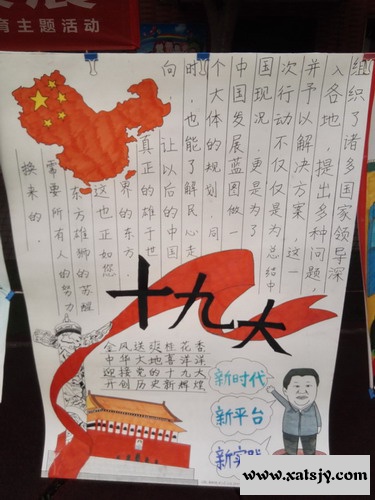 育主题活动
组织了诸多国家领导深
入各地，提出多种问题，
并予以解决方案，这一
次行动不仅仅是为总结中
国现况，更是为了
中国发展蓝图做一
个大体的规划，同
时，也能了解民心走
向，让以后的中国
真正的雄于世
界的东方，
这也正如您
东方雄狮的苏醒
需要所有人的努力
换来的。
十九大
金风送爽桂花香
中华大地喜洋洋
迎接党的十九大
开创历史新辉煌
新时代
新平台
新实
www.xatsjy.com